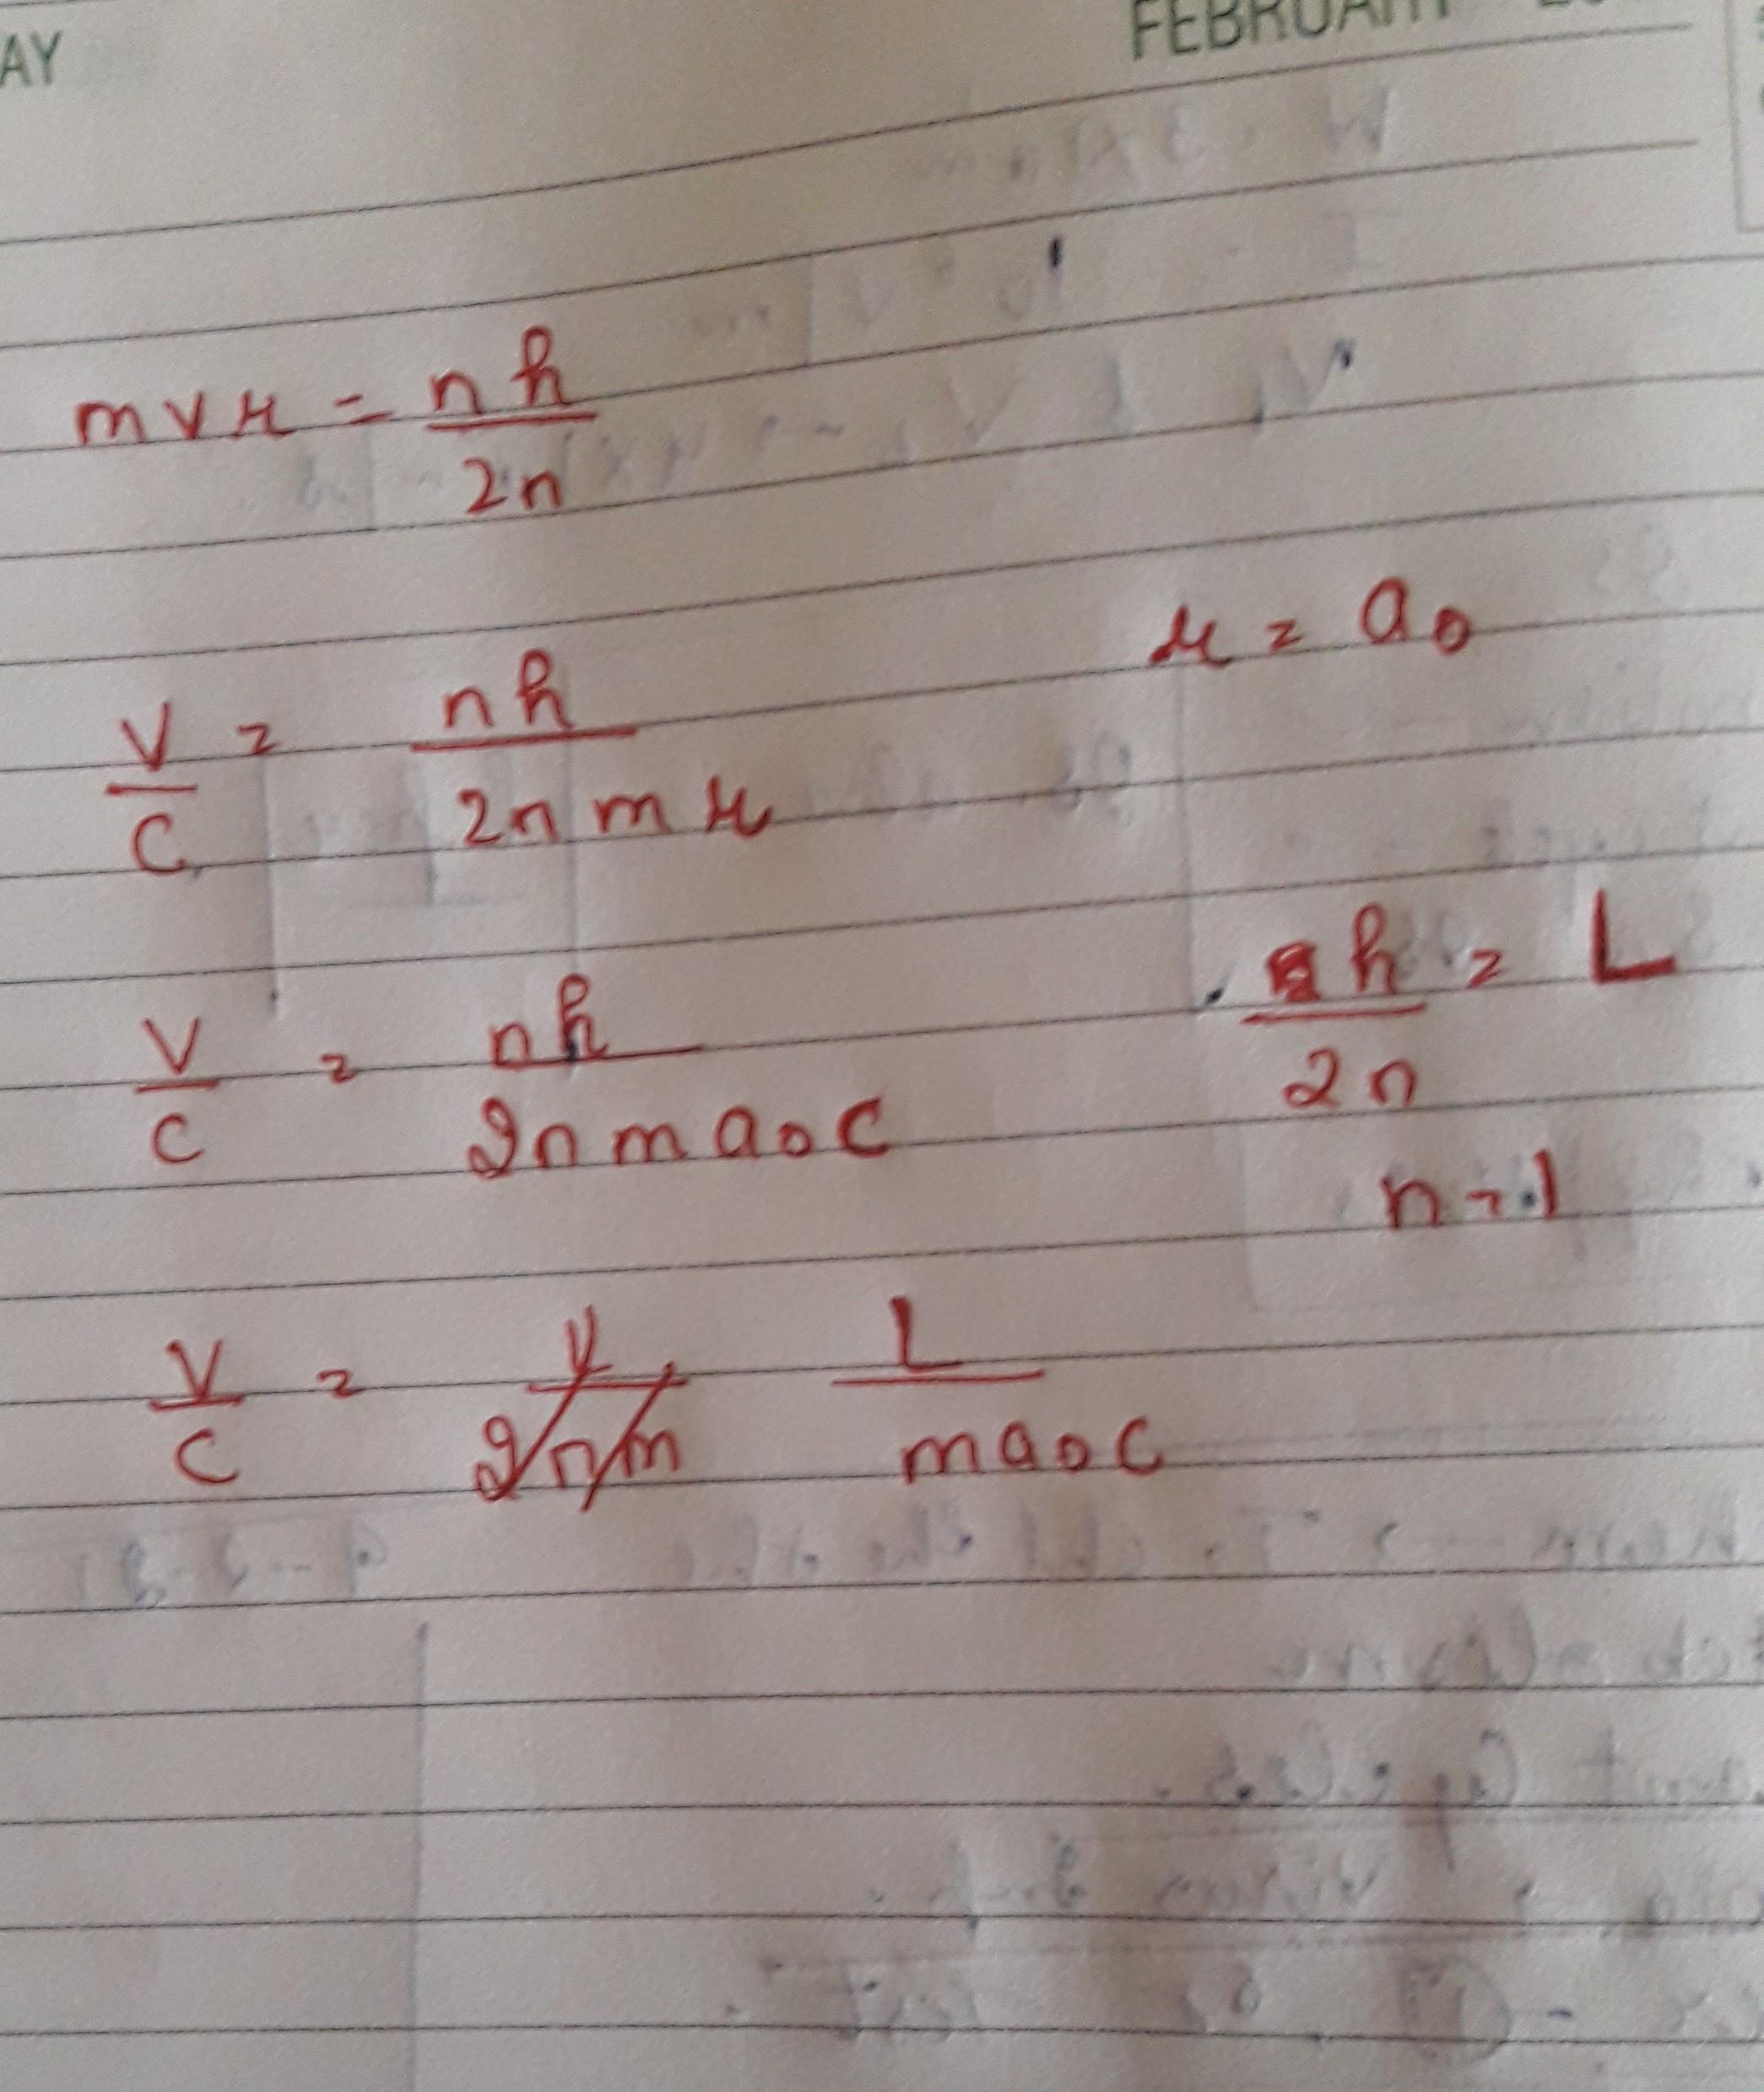 AY FEBRUARY
mvr = nh/2π
r = a₀
V/C = nh/2πmr
h/2π = L
V/C = nh/2πma₀c
n = 1
V/C = L/ma₀c